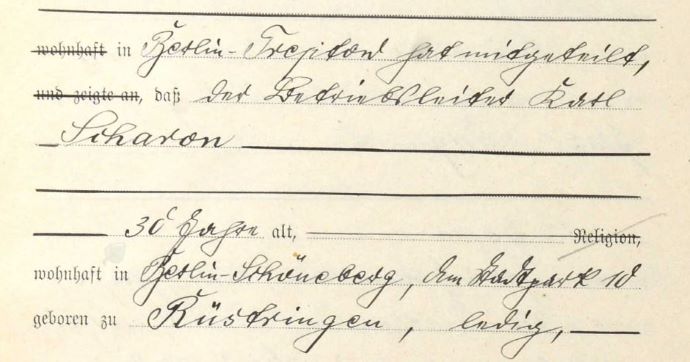 wohnhaft in Berlin-Treptow hat mitgeteilt,
und zeigte an, daß der Betriebsleiter Karl
Scharon
30 Jahre alt, Religion,
wohnhaft in Berlin-Schöneberg, Am Stadtpark 10
geboren zu Rüstringen, ledig,